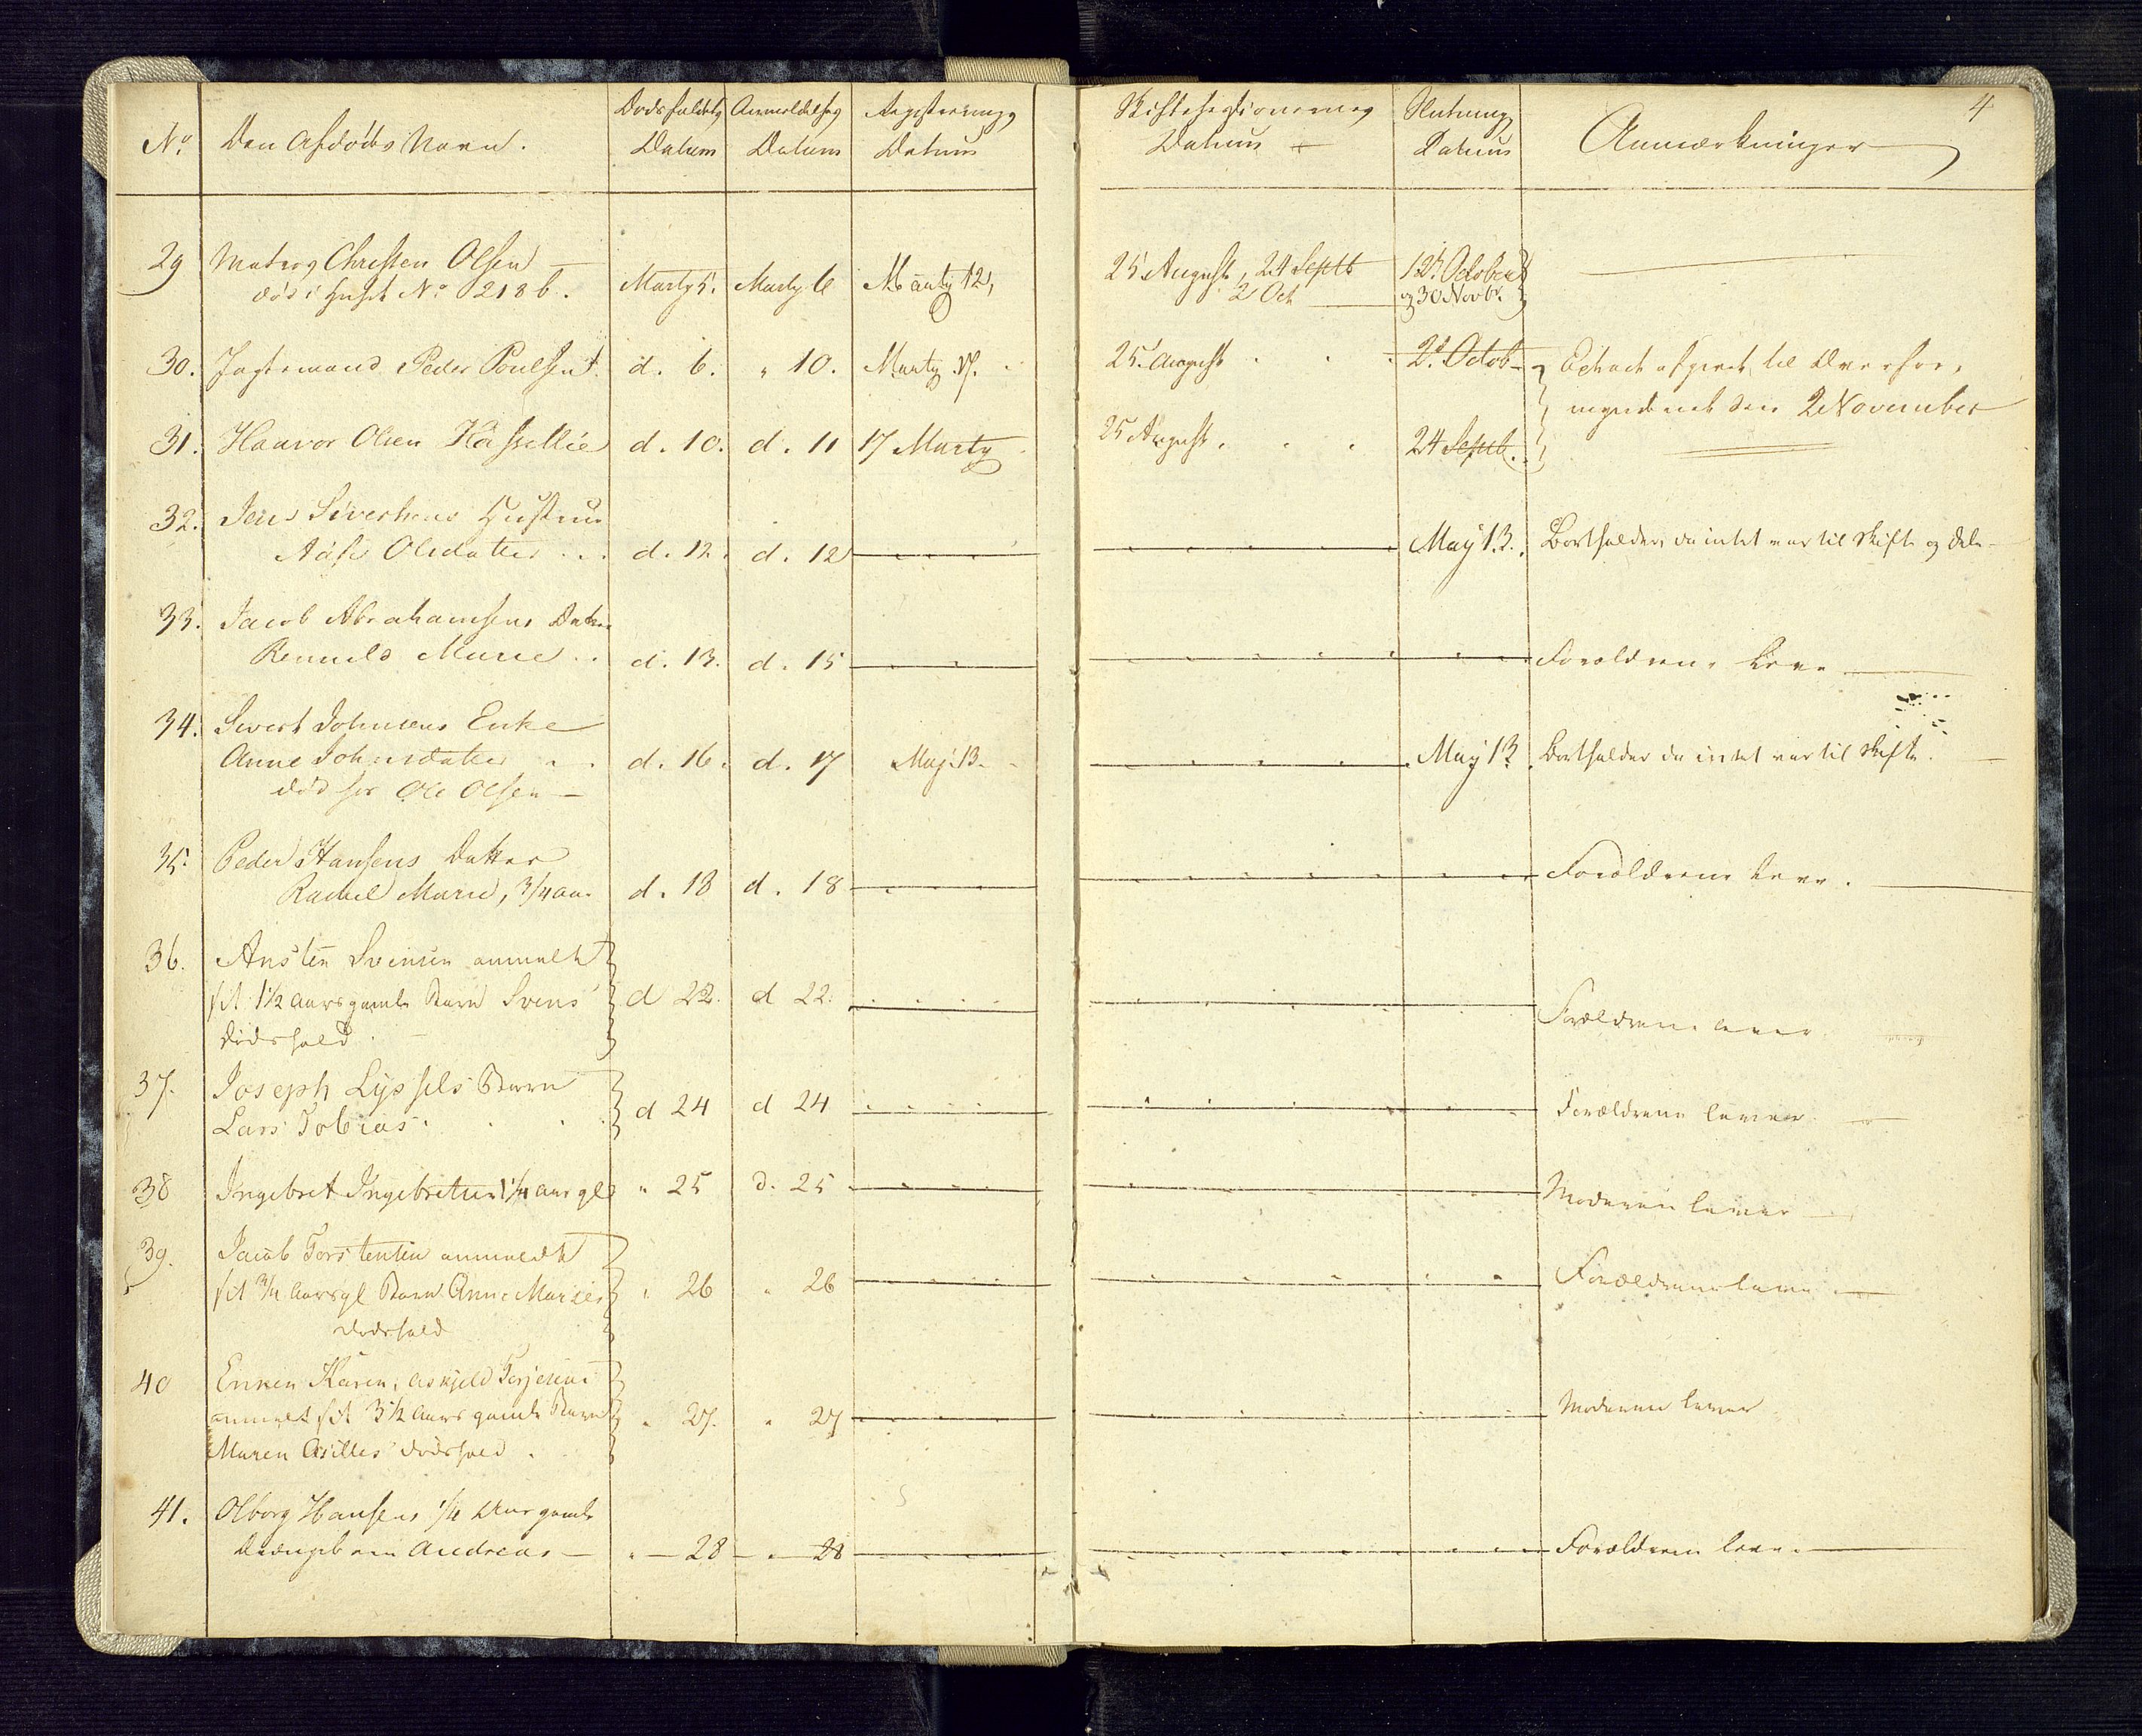 4
No. Den Afdødes Navn. Dødsfaldets Datum Anmeldelses Datum Registerings Datum Skiftesessionernes Datum Slutnings Datum Anmærkninger
29 Matros Christen Olsen
død i Huset No. 218 b. Marty 5. Marty 6 Marty 12, 25 August, 24 Septb 12t October
2 Oct og 30 Novbr.
30. Peder Poulsen d. 6. " 10. Marty 17. 25 August 2d Octob. Extract afgivet til Overfor,
mynderiet den 2 November
31. Haavor Olsen Hassellie d. 10. d. 11 17 Marty 25 August. 24 Septb.
32. Jens Siversens Hustrue
Aase Olsdatter d. 12. d. 12 May 13. Bortfalder, da intet var til Skifte og Dele
33. Jacob Abrahamsens Datter
Marie d. 13. d. 15 Forældrene leve
34. Sivert Johnsens Enke
Anne Johnsdatter d. 16. d. 17 May 13. May 13 Bortfalder da intet var til Skifte.
død hos Ole Olsen
35. Peder Hansens Datter
Rachel Marie, 3/4 aar d. 18 d. 18 Forældrene leve.
36. Ansten Svensen anmeldt
sit 1 1/2 aars gamle Barn Svens d 22. d 22. Forældrene lever
Dødsfald.
37. Joseph Lyssels Barn
Lars Tobias d 24 d 24 Forældrene lever
38 Ingebret Ingebretsen 1 1/4 aar gl " 25 d. 25 Moderen lever
39. Jacob Torstensen anmeldt
sit 3/4 Aars gl Barn Anne Maries " 26 " 26 Forældrene leve
Dødsfald
40 Enken Karen, Askjeld Terjesens
anmelt sit 3 1/2 aars gamle Barn " 27. " 27 Moderen lever
Maren Asilles dødsfald.
41. Olborg Hansens 1/4 Aar gamle
Drengebarn Andreas " 28 " 28 Forældrene leve.